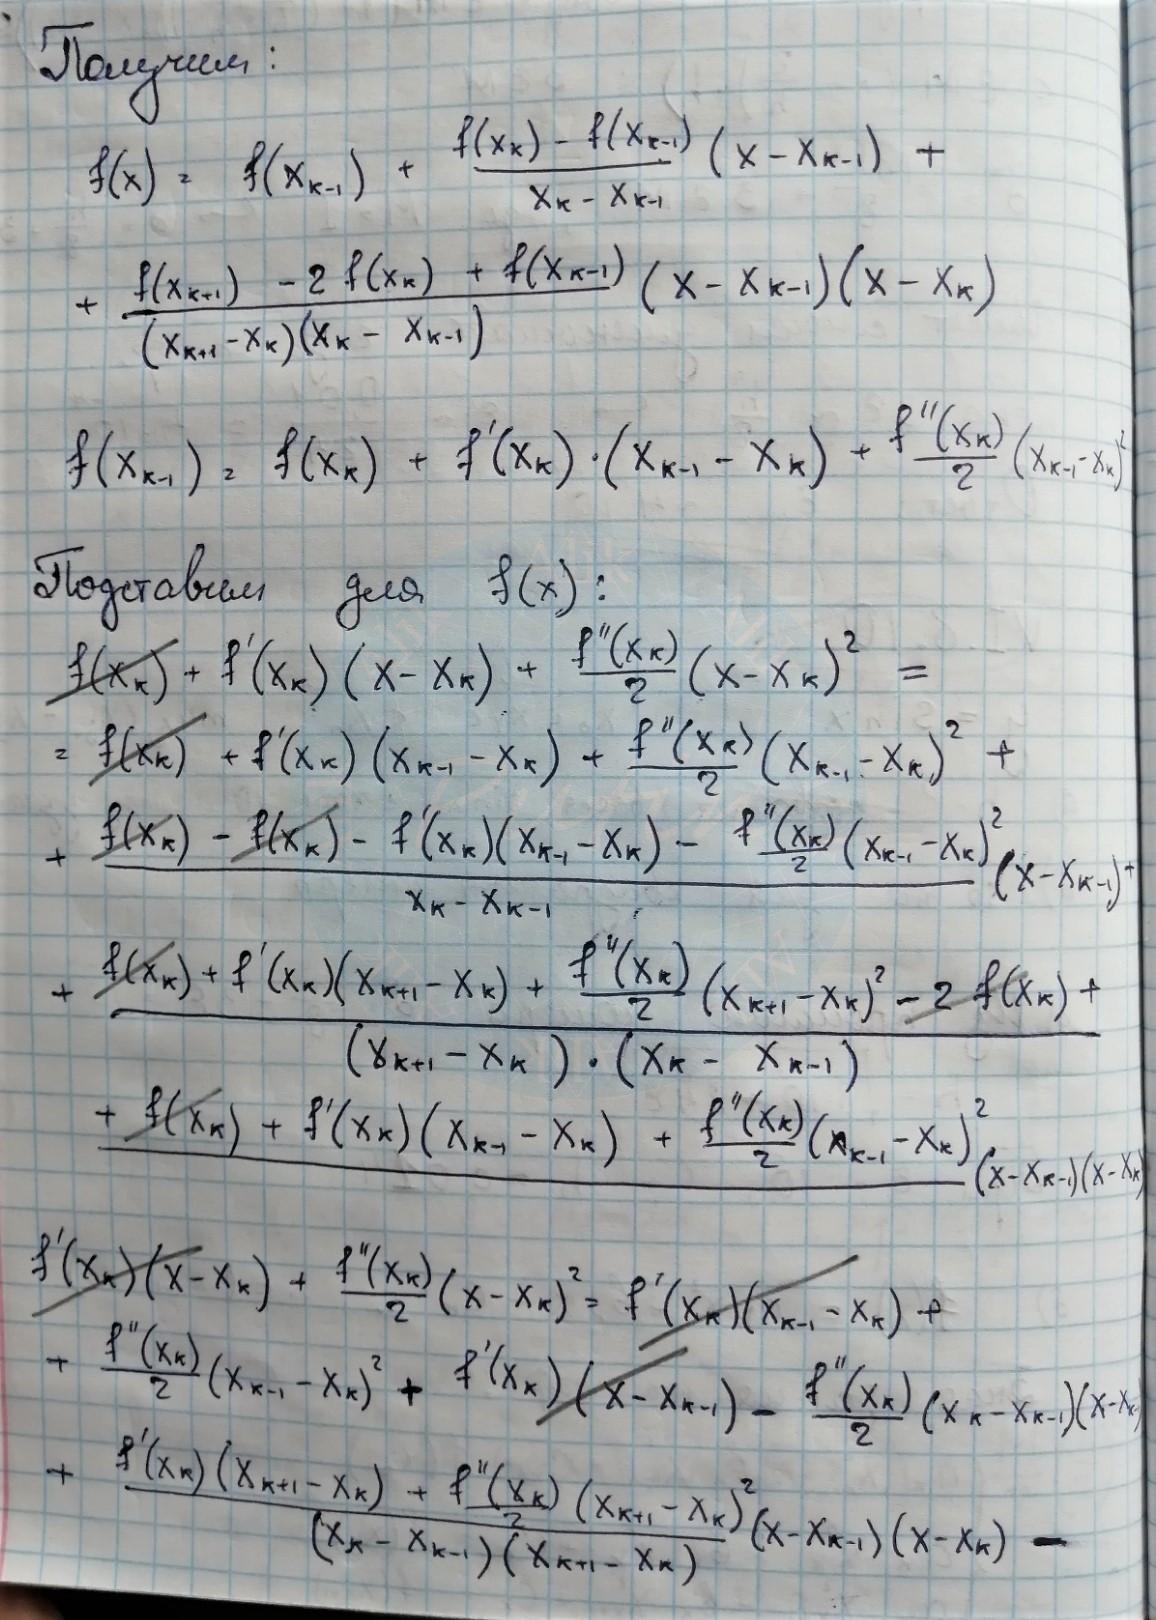 Получим:
f(x) = f(x_{k-1}) + \frac{f(x_k) - f(x_{k-1})}{x_k - x_{k-1}} (x - x_{k-1}) +
+ \frac{f(x_{k+1}) - 2 f(x_k) + f(x_{k-1})}{(x_{k+1} - x_k)(x_k - x_{k-1})} (x - x_{k-1})(x - x_k)
f(x_{k-1}) = f(x_k) + f'(x_k) \cdot (x_{k-1} - x_k) + \frac{f''(x_k)}{2} (x_{k-1} - x_k)^2
Подставим для f(x):
f(x_k) + f'(x_k)(x - x_k) + \frac{f''(x_k)}{2} (x - x_k)^2 =
= f(x_k) + f'(x_k)(x_{k-1} - x_k) + \frac{f''(x_k)}{2} (x_{k-1} - x_k)^2 +
+ \frac{f(x_k) - f(x_k) - f'(x_k)(x_{k-1} - x_k) - \frac{f''(x_k)}{2} (x_{k-1} - x_k)^2}{x_k - x_{k-1}} (x - x_{k-1}) +
+ \frac{f(x_k) + f'(x_k)(x_{k+1} - x_k) + \frac{f''(x_k)}{2} (x_{k+1} - x_k)^2 - 2 f(x_k) +}{(x_{k+1} - x_k) \cdot (x_k - x_{k-1})}
+ f(x_k) + f'(x_k)(x_{k-1} - x_k) + \frac{f''(x_k)}{2} (x_{k-1} - x_k)^2 (x - x_{k-1})(x - x_k)
f'(x_k)(x - x_k) + \frac{f''(x_k)}{2} (x - x_k)^2 = f'(x_k)(x_{k-1} - x_k) +
+ \frac{f''(x_k)}{2} (x_{k-1} - x_k)^2 + f'(x_k)(x - x_{k-1}) - \frac{f''(x_k)}{2} (x_k - x_{k-1})(x - x_k
+ \frac{f'(x_k)(x_{k+1} - x_k) + \frac{f''(x_k)}{2} (x_{k+1} - x_k)^2}{(x_k - x_{k-1})(x_{k+1} - x_k)} (x - x_{k-1})(x - x_k) -